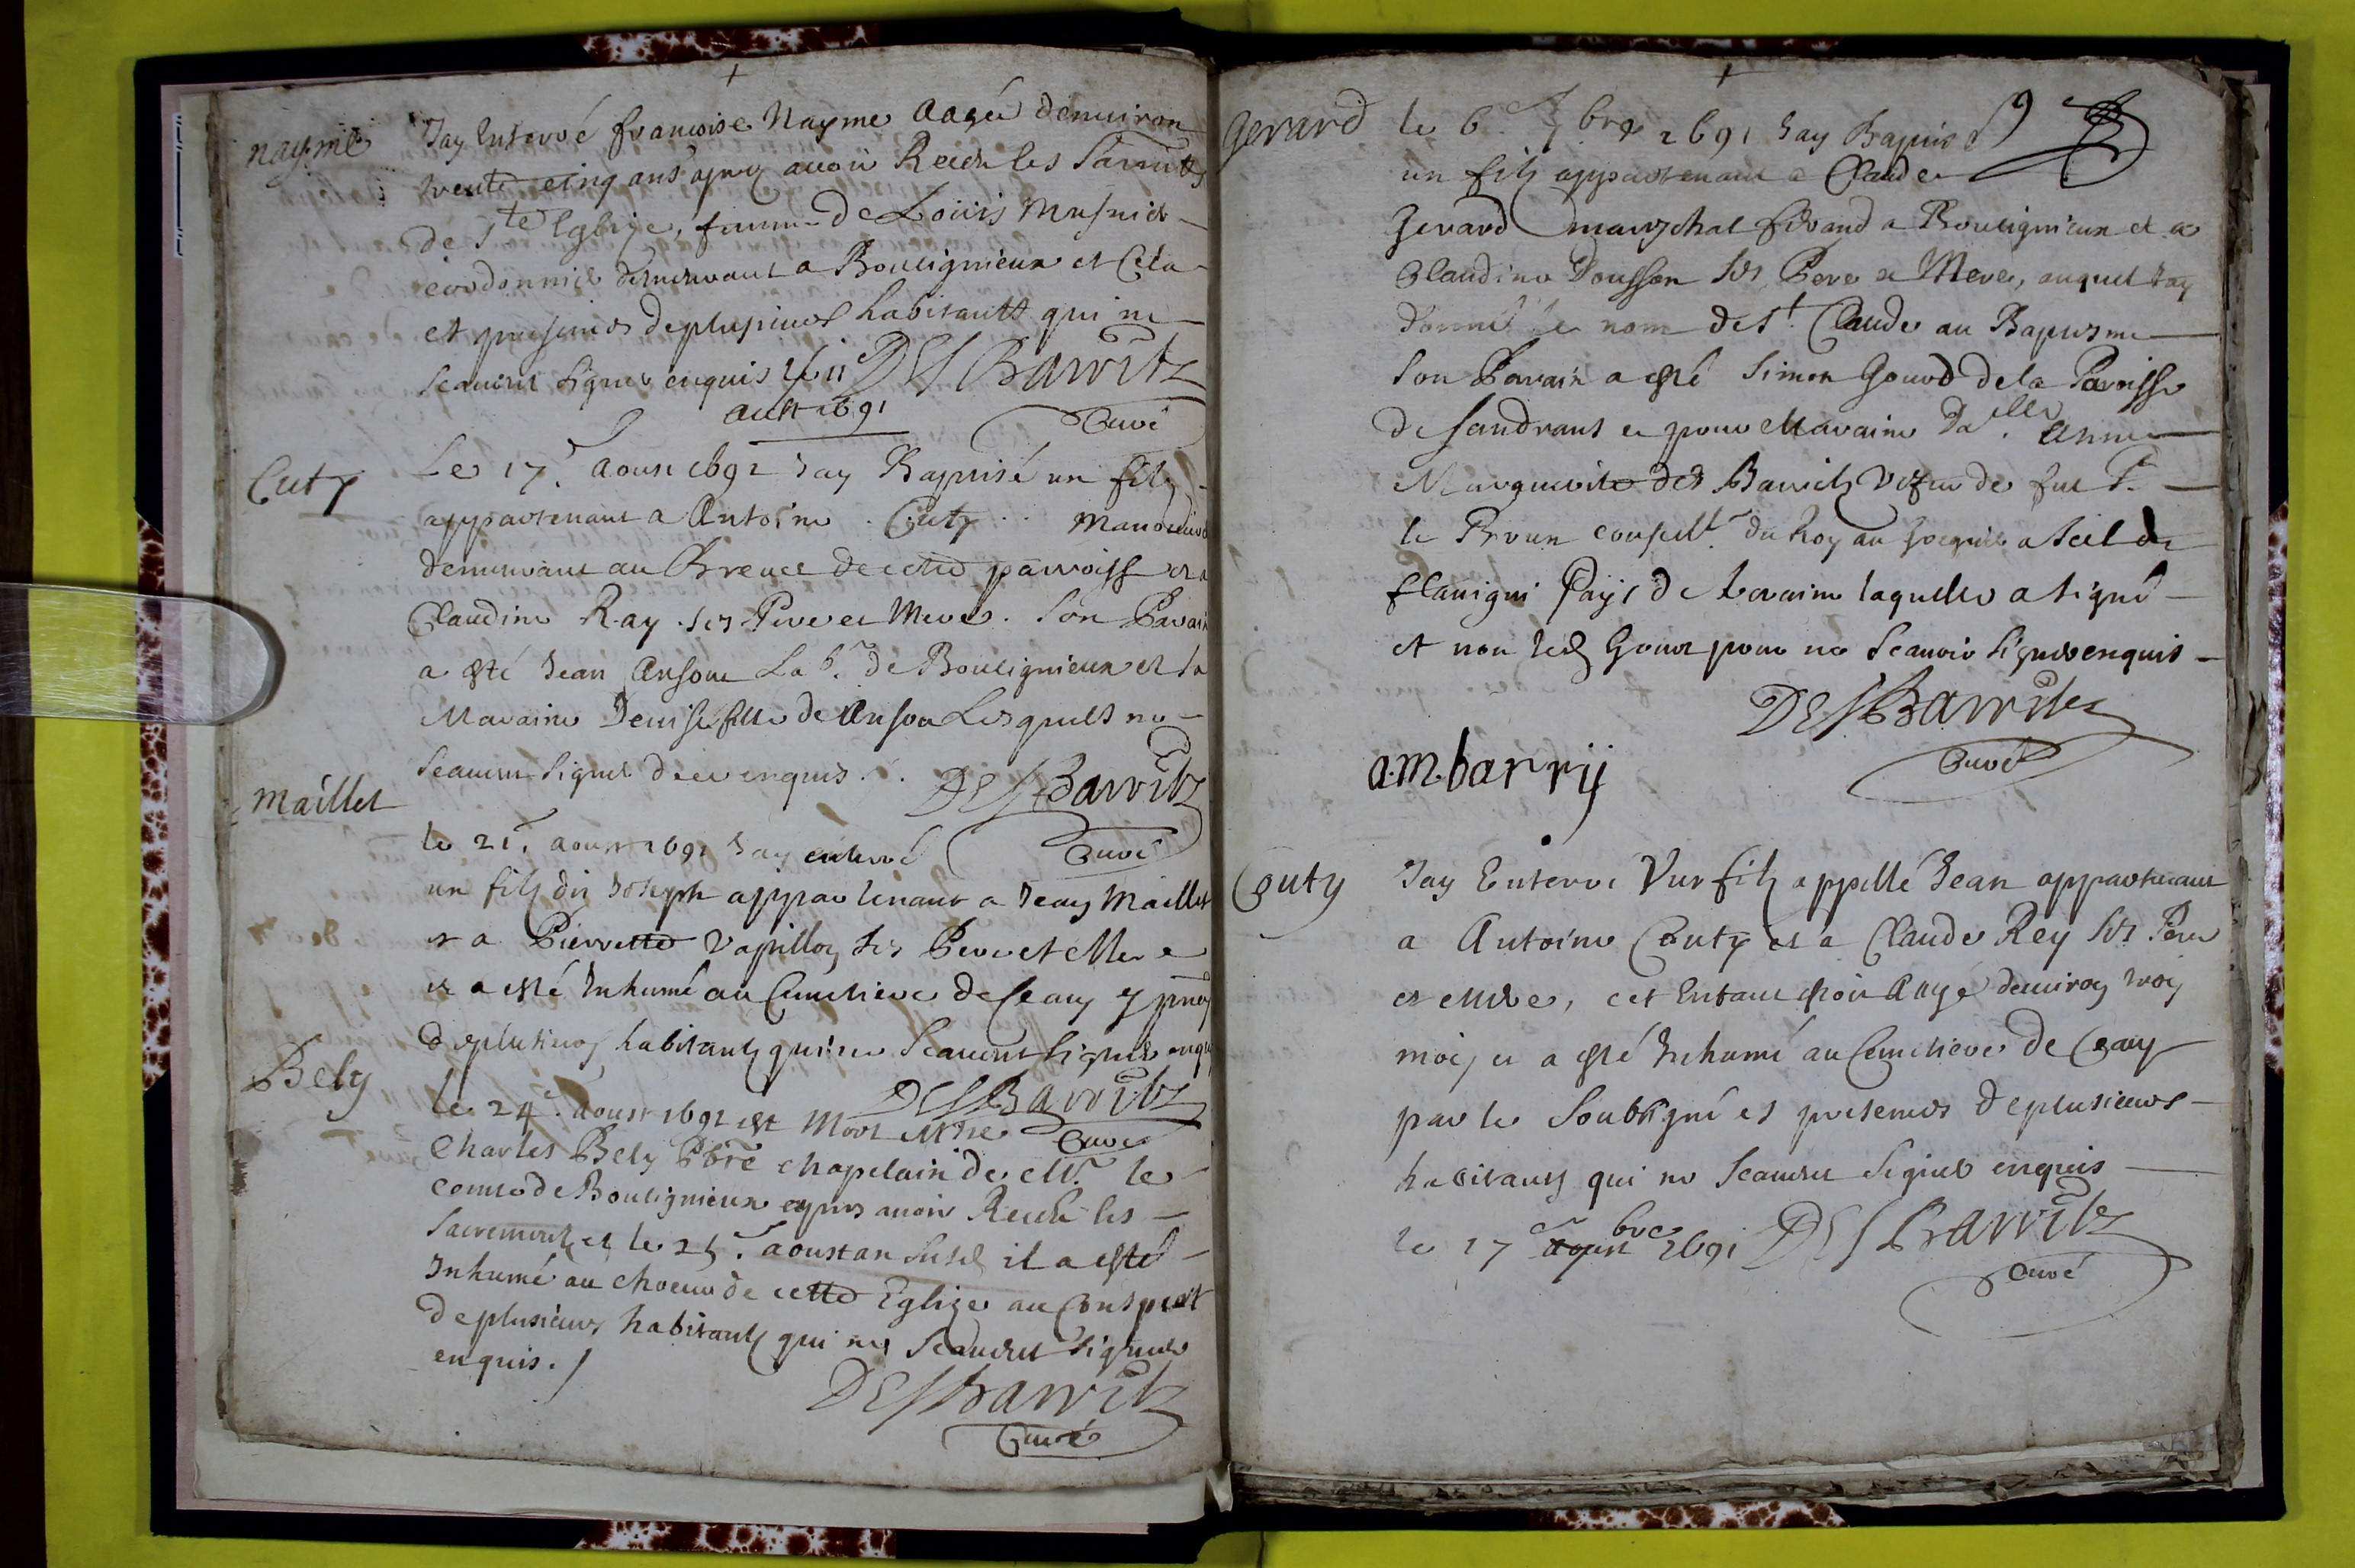 nayme
Jay Enterré francoise Nayme Aagée denuiron
trente cinq ans apres auoir Receu les Sacrmtts
de Ste Eglize, femme de Loüis
cordonnier demeurant a Boulignieux et Cela
et presences de plusieurs habitantt qui ne
scauent signer enquis le 11 DESBarritz
aust 1691 Curé
Cuty
Le 17e. Aoust 1691 Jay Baptisé un filz
appartenant a Antoine Cuty
demeurant au Breuet de cette parroisse et a
Claudine Ray ses Pere et Mere. Son Parain
a esté Jean Ansone Labr. de Boulignieux et la
Maraine Denise fille de Anson Lesquels ne
scauent signer de ce enquis. DESBarritz
Curé
Maillet
le 21e. aoust 1691 Jay enterré
un filz dit Joseph appartenant a Jean Maillet
et a Pierrette Vapilloz ses Pere et Mere
et a esté Inhumé au Cimetiere de Ceans
de plusieurs habitants qui ne scauent signer enqu
DESBarritz
Curé
Bely
le 24e. aoust 1691 est Mort Mre
Charles Bely Pbre chapelain de Mr. le
comte de Bouligneux apres auoir Receu les
sacrements et le 25e. aoust an susd il a esté
Inhumé au choeur de cette Eglize au Conspect
de plusieurs habitants qui ne scauent signer
enquis./
DESBarritz
Curé
Gerard
le 6e 7bre 1691 Jay Baptisé
un filz appartenant a Claude
Gerard mareschal ferrand a Boulignieux et a
Claudine Dousson ses Pere et Mere, auquel Jay
donné le nom de St. Claude au Baptesme
Son Parain a esté Simon Gourd de la Paroisse
de Sandrans et pour Maraine Dalle. Anne
Marguerite des Barritz Vefue de fut Sr.
le Brun conseillr. du Roy au grenier a sel de
flauigni Pays de Loraine laquelle a signé
et non led Gour pour ne scauoir signer enquis
DESBarritz
Curé
a.m.barrij
Couty
Jay Enterré Un filz appellé Jean appartenant
a Antoine Couty et a Claude Rey ses Pere
et Mere, cet Enfant estoit Aagé denuiron trois
mois, et a esté Inhumé au Cimetiere de Ceans
par le Soubsigné et presences de plusieurs
habitants qui ne scauent signer enquis
le 17e bre 1691 DESBarritz
Curé